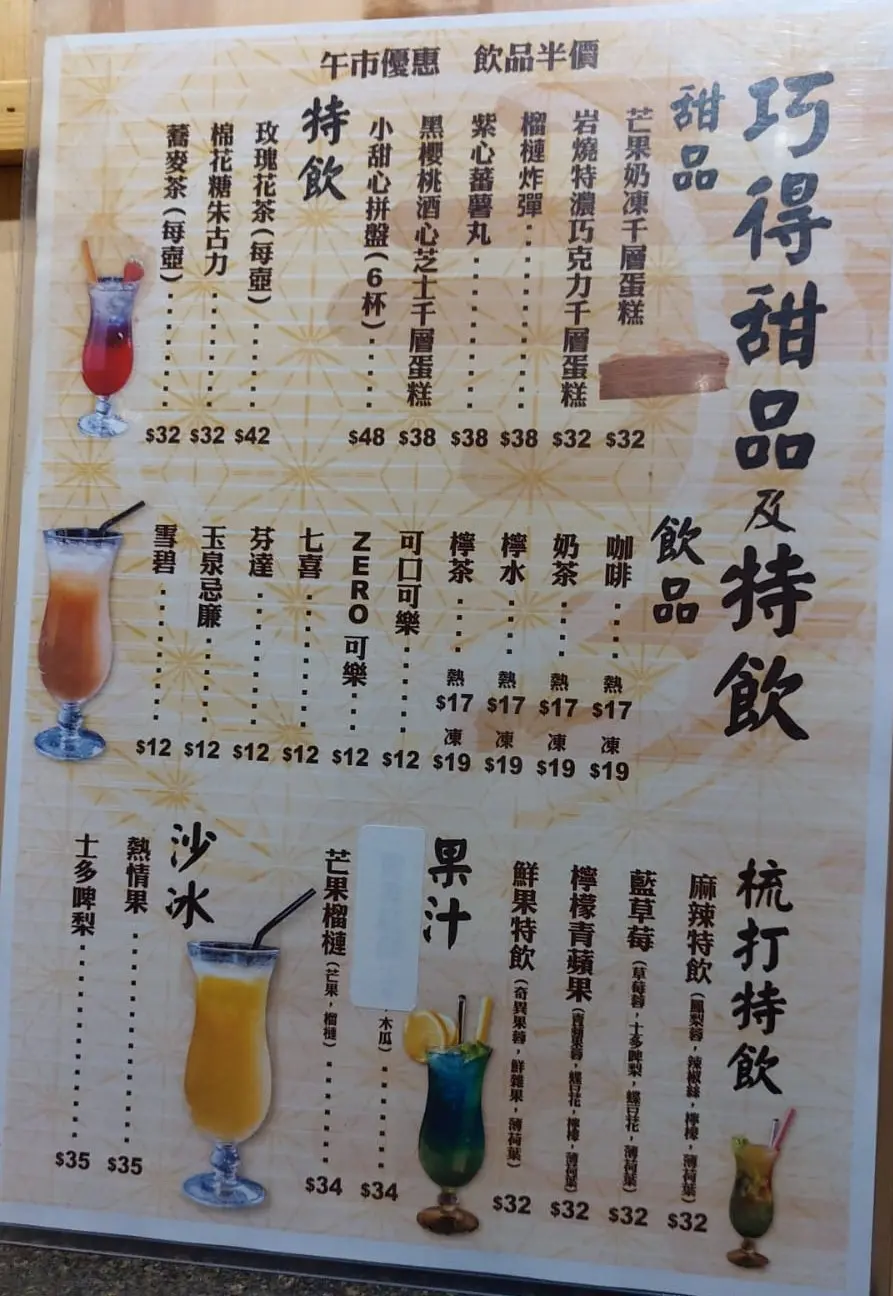 午市優惠　飲品半價
巧得甜品及特飲
甜品
芒果奶凍千層蛋糕 $32
岩燒特濃巧克力千層蛋糕 $32
榴槤炸彈 $38
紫心蕃薯丸 $38
黑櫻桃酒心芝士千層蛋糕 $38
小甜心拼盤(6杯) $48
特飲
玫瑰花茶(每壺) $42
棉花糖朱古力 $32
蕎麥茶(每壺) $32
飲品
咖啡 熱 $17 凍 $19
奶茶 熱 $17 凍 $19
檸水 熱 $17 凍 $19
檸茶 熱 $17 凍 $19
可口可樂 $12
ZERO 可樂 $12
七喜 $12
芬達 $12
玉泉忌廉 $12
雪碧 $12
梳打特飲
麻辣特飲(鳳梨蓉，辣椒絲，檸檬，薄荷葉) $32
藍草莓(草莓蓉，士多啤梨，蝶豆花，薄荷葉) $32
檸檬青蘋果(青蘋果蓉，蝶豆花，檸檬，薄荷葉) $32
鮮果特飲(奇異果蓉，鮮雜果，薄荷葉) $32
果汁
，木瓜) $34
芒果榴槤(芒果，榴槤) $34
沙冰
熱情果 $35
士多啤梨 $35